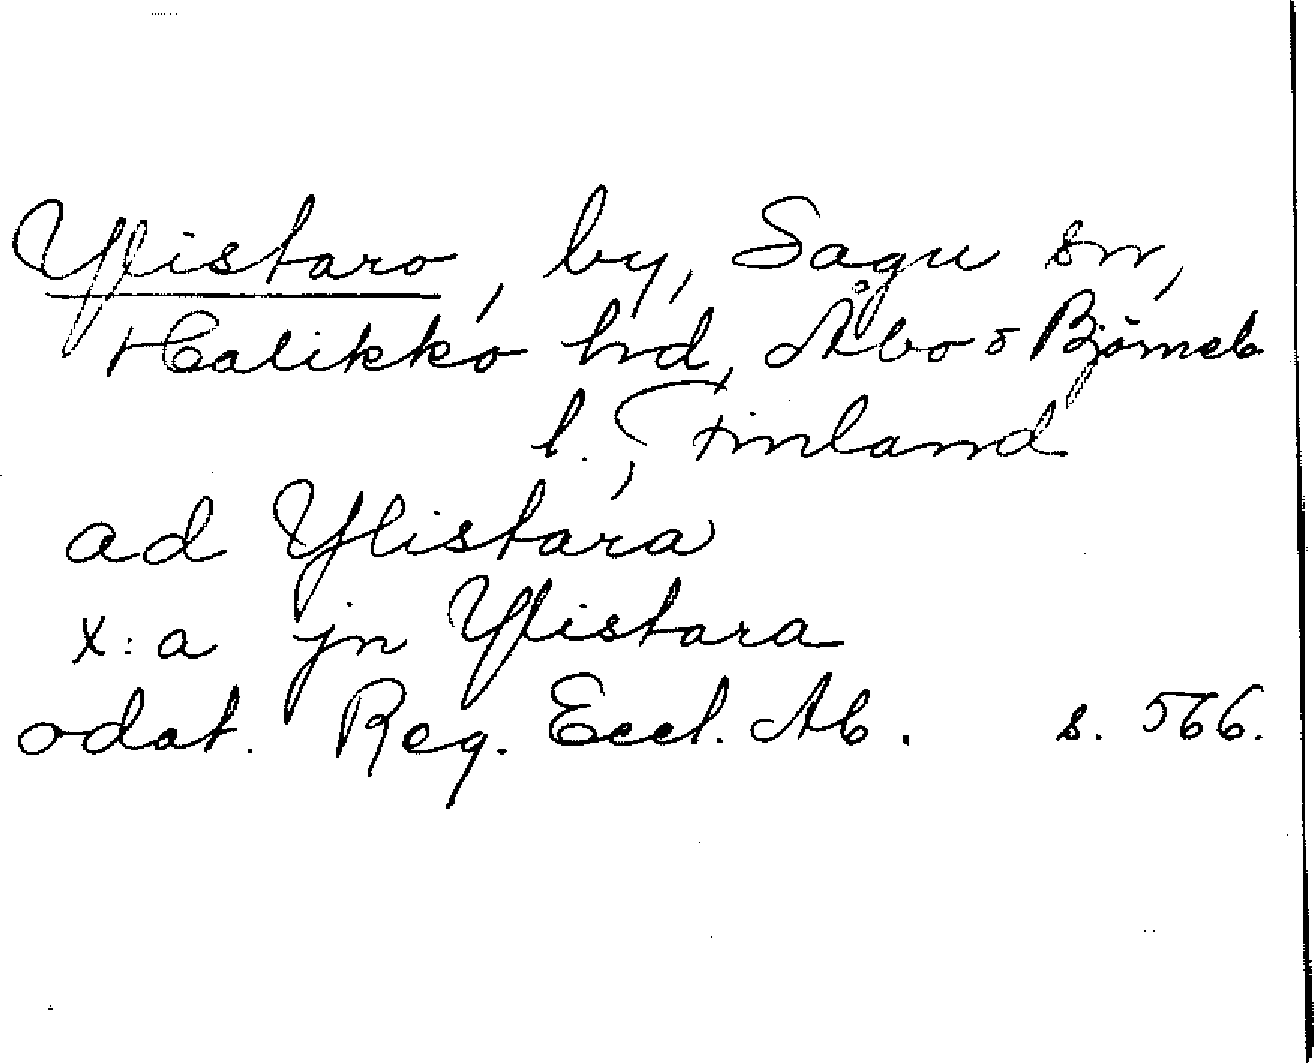 Ylistaro, by, Sagu sn,
Halikko hd, Åbo o Björneb
l., Finland
ad Ylistara
x:a jn Ylistara
odat. Reg. Eccl. Ab. s. 566.